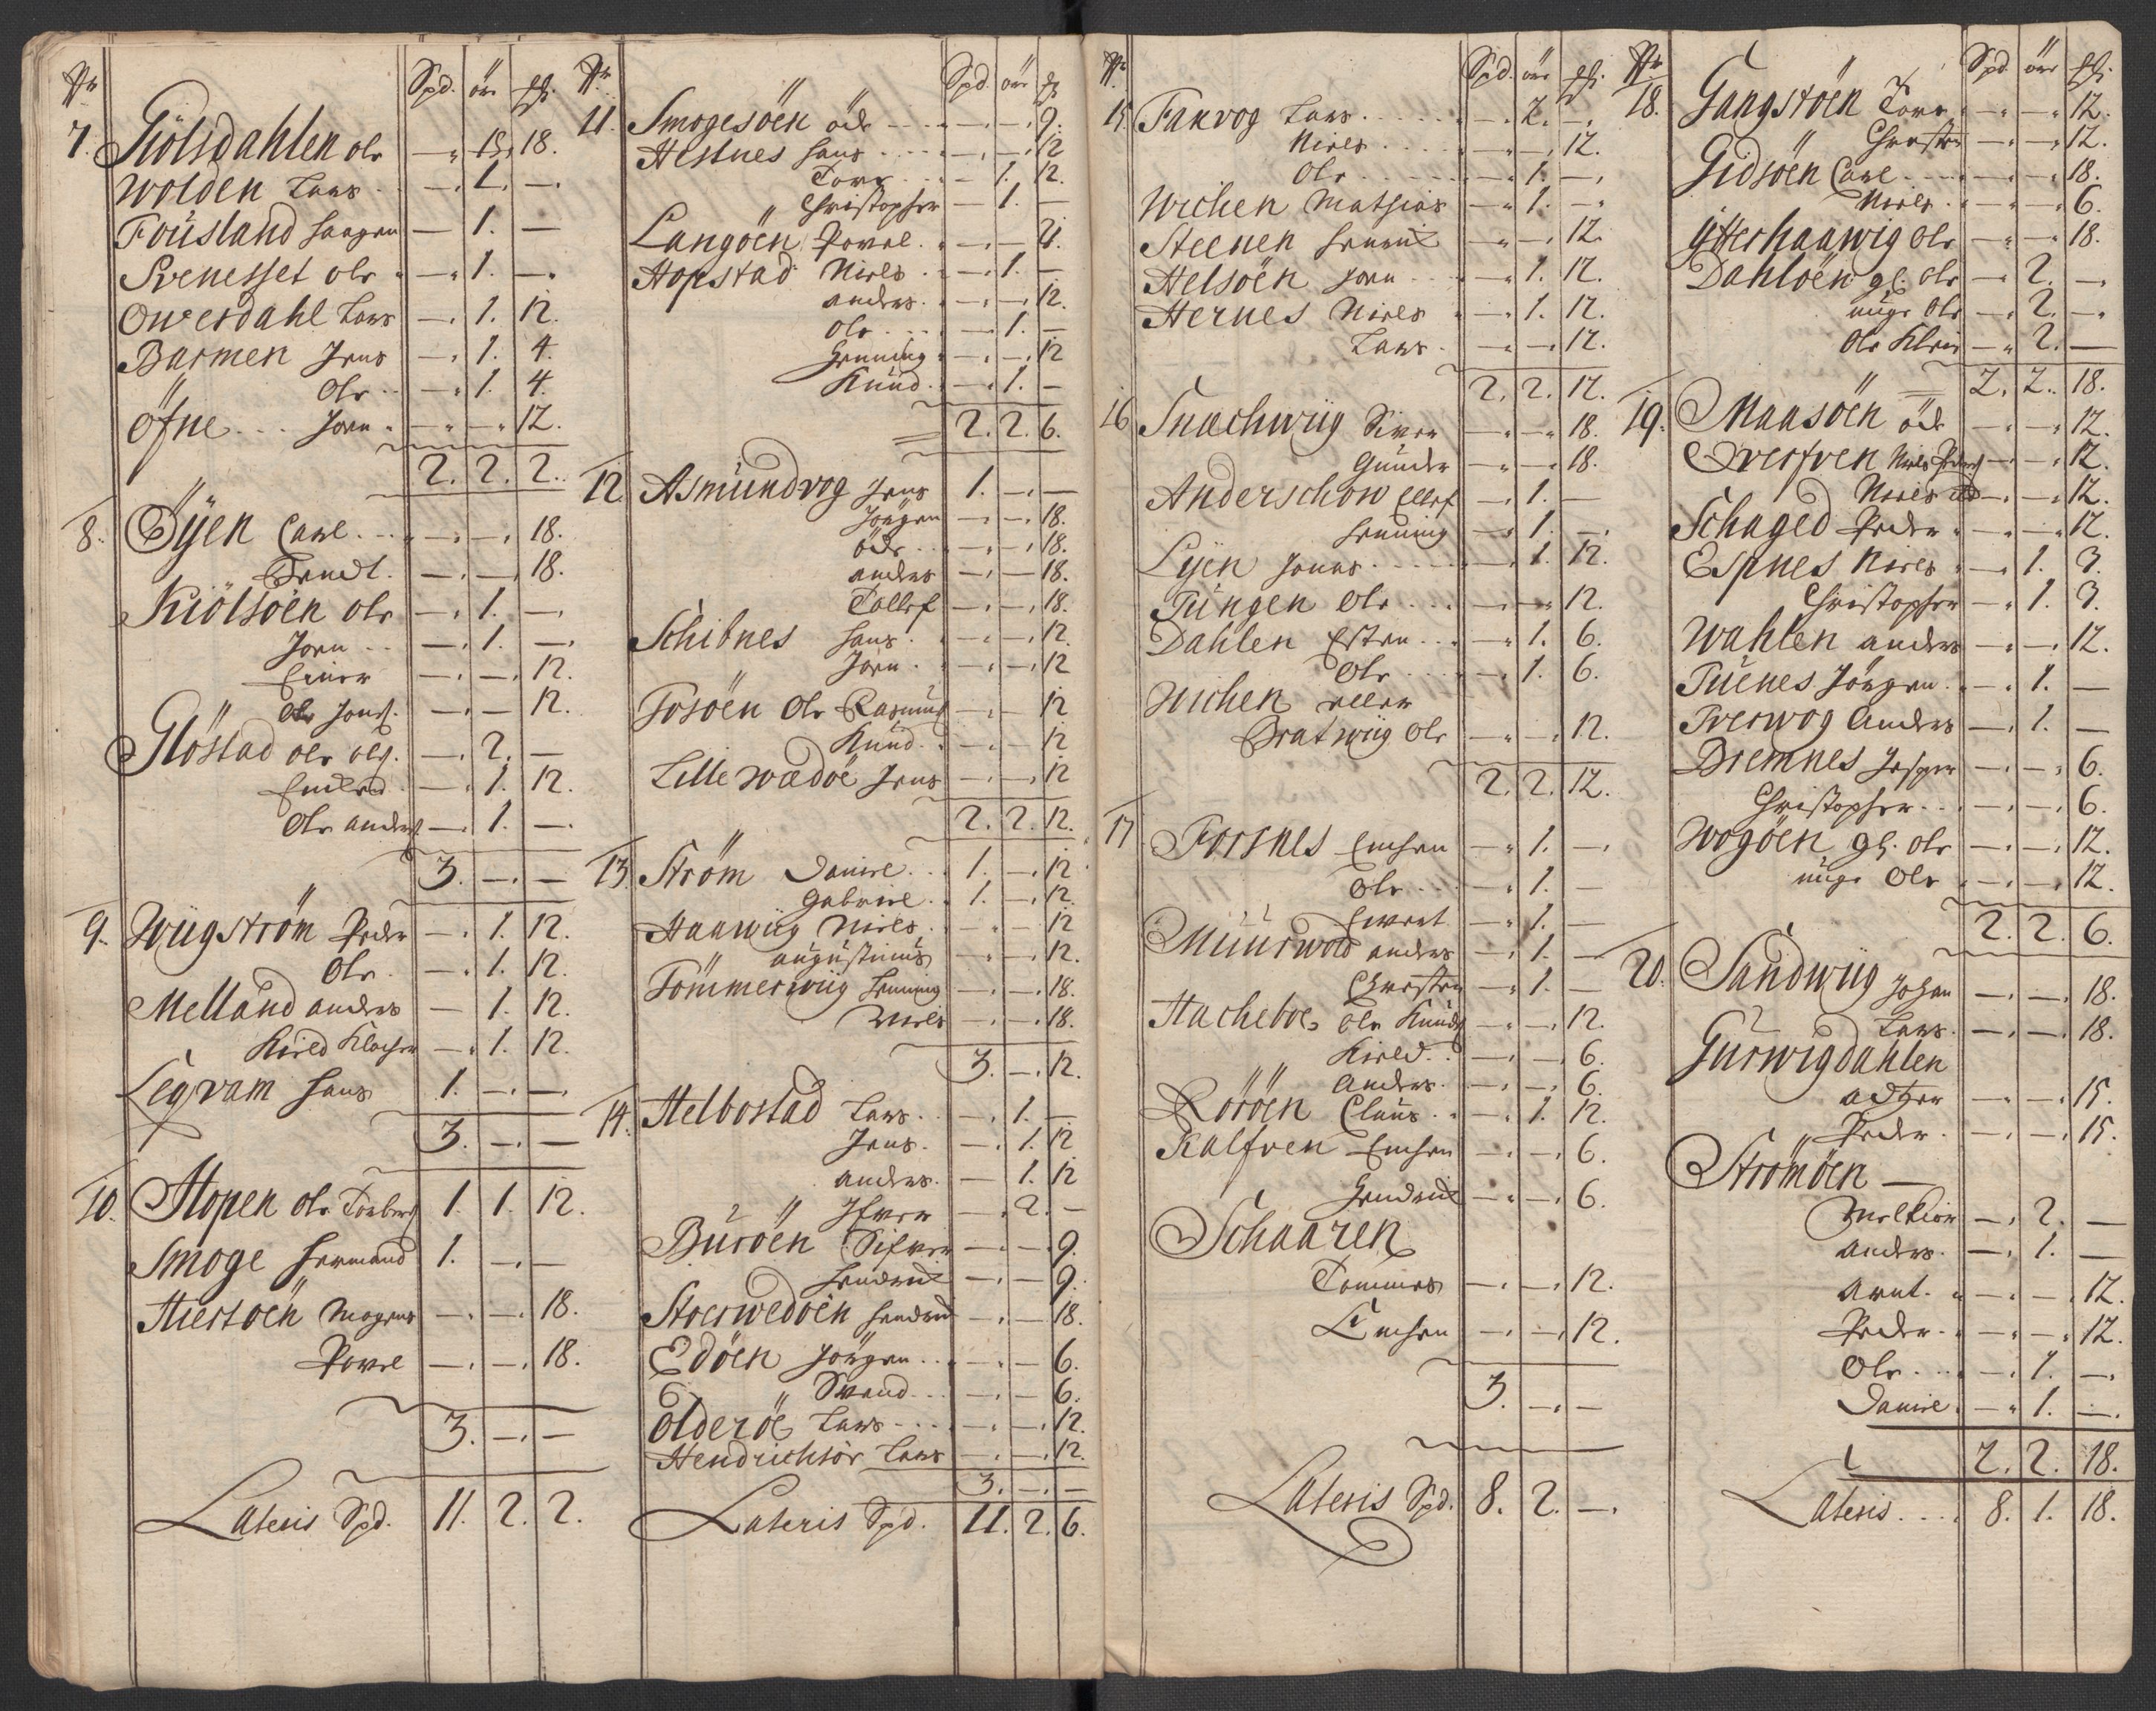 Nr Spd. öre ß.
7. Giölsdahlen ole — 15. 18.
Wolden Lars — 1. —
Foüsland haagen — 1. —
Svenesset ole — 1. —
Owesdahl Lars — 1. 12.
Barmen Jens — 1. 4.
Ole — 1. 4.
öfne Jon — — 12.
2. 2. 2.
8. Öyen Carl — — 18.
Trudt — — 18.
Kiölsöen ole — 1. —
Jon — 1. —
Einer — — 12.
ole Jons. — — 12.
Glöstad ole ols. — 2. —
Endred — 1. 12.
Ole anders — 1. —
3. — —
9. Wügström Peder — 1. 12.
Ole — 1. 12.
Melland anders — 1. 12.
Kield Klocher — 1. 12.
Legvam hans 1. — —
3. — —
10. Hopen ole Torbers 1. 1. 12.
Smoge hermand 1. — —
Hiertöen Mogens — — 18.
Povel — — 18.
3. — —
Lateris Spd. 11. 2. 2.
Nr Spd. öre ß
11. Smogesöen öde — — 9.
Hestnes hans — — 12
Tore — 1. 12.
Christopher — 1. —
Langöen Povel — — 21.
Hopstad Niels — 1. —
anders — — 12.
Ole — 1. —
Henning — — 12
Knüd — 1. —
2. 2. 6.
12 Asmündvog Jens 1. — —
Jörgen — — 18.
öde — — 18.
anders — — 18.
Tollef — — 18.
Schibnes hans — — 12.
Jörn — — 12
Fosöen Ole Rasmus — — 12
Knüd — — 12
Lille wædöe Jens — — 12
2. 2. 12.
13. Ström Daniel 1. — 12
Gabriel 1. — 12.
Haawüg Niels — — 12
augustinüs — — 12.
Tömmerwüg Henning — — 18.
Niels — — 18.
3. — 12.
14. Helbostad Lars — 1. —
Jens — 1. 12
anders — 1. 12
Ifver — 2. —
Büröen Sifver — — 9.
Hendrich — — 9.
Storwedöen hendrich — — 18.
Edöen Jörgen — — 6.
Svend — — 6.
Olderöe Lars — — 12.
Hendrichsör Lars — — 12.
3. — —
Lateris Spd. 11. 2. 6.
Nr Spd. öre ß.
15. Fakvog Lars — 2. —
Niels — — 12.
Ole — 1. —
Wichen Mathias — 1. —
Steenen henrich — — 12.
Helsöen Jörn — 1. 12.
Hernes Niels — 1. 12.
Lars — — 12.
2. 2. 12.
16 Snachwüg Siver — — 18.
Günder — — 18.
Anderschow Ellef — 1. —
henning — 1. —
Lyen Jonas — 1. 12.
Tüngen Ole — — 12.
Dahlen Esten — 1. 6.
Ole — 1. 6.
Wichen eller
Bratwüg Ole — — 12.
2. 2. 12.
17 Forsnes Enchen — 1. —
Ole — 1. —
Ewert — 1. —
Müürwold anders — 1. —
Christen — 1. —
Hacheboe Ole Knüds — — 12.
Kield — — 6.
Anders — — 6.
Roröen Claüs — 1. 12.
Kalfven Enchen — — 6.
Hendrich — — 6.
Schaaren
Tommes — — 12.
Enchen — — 12.
3. — —
Lateris Spd. 8. 2. —
Nr Spd öre ß.
18. Gangstöen Tore — — 12.
Christen — — 12.
Gidsöen Carl — — 18.
Niels — — 6.
Ytterhaawig Ole — — 18.
Dahlöen gl: ole — 2. —
unge Ole — 2. —
Ole Klein — 2. —
2. 2. 18.
19. Maasöen öde — — 12.
Qverfven Niels Peders — — 12.
Niels — — 12.
Schaged Peder — — 12.
Espnes Niels — 1. 3.
Christopher — 1. 3.
Wahlen anders — — 12.
Tüenes Jörgen — 1. —
Tverwog Anders — 1. —
Bremnes Jesper — — 6.
Christopher — — 6.
Wogöen gl. ole — — 12.
unge Ole — — 12.
2. 2. 6.
20. Sandwüg Johan — — 18.
Lars — — 18.
Gürwigdahlen
adtzer — — 15.
Peder — — 15.
Strömöen —
Melkior — 2. —
anders — 1. —
Arent — — 12.
Peder — — 12.
Ole — 1. —
Daniel — 1. —
2. 2. 18.
Lateris 8. 1. 18.